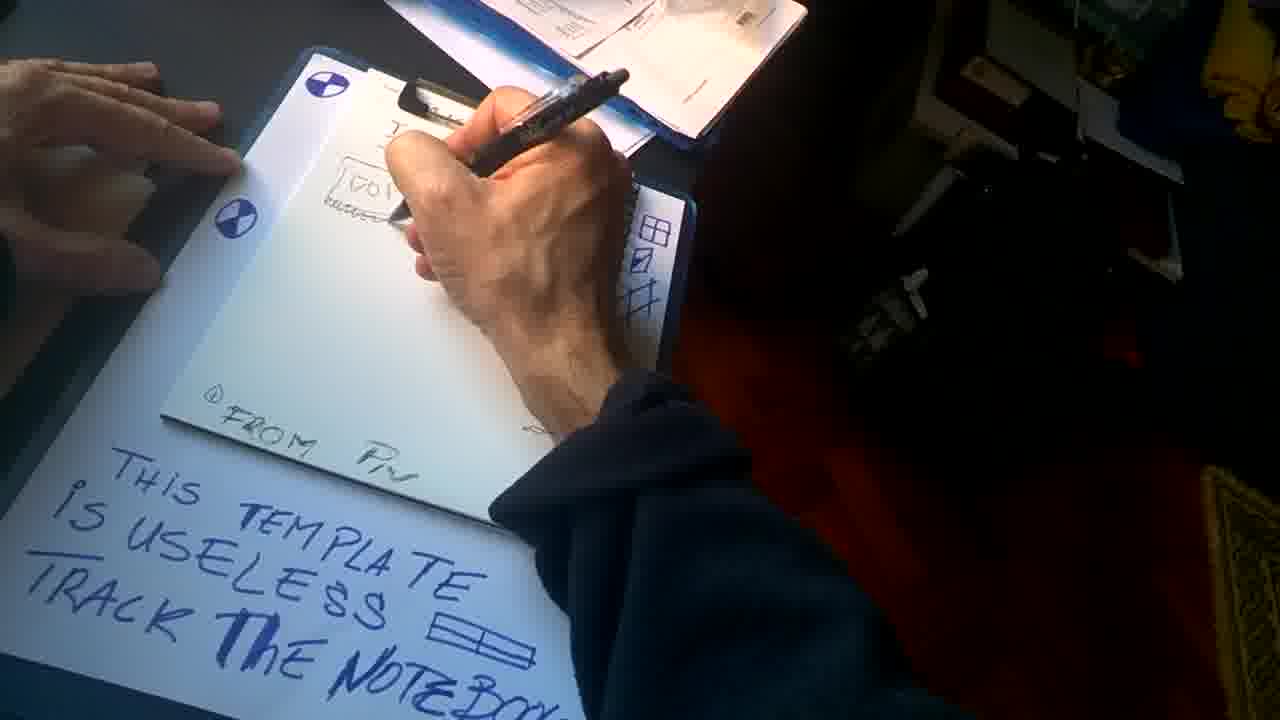 ① FROM
THIS TEMPLATE
iS USELESS
TRACK THE NOTEBOOK